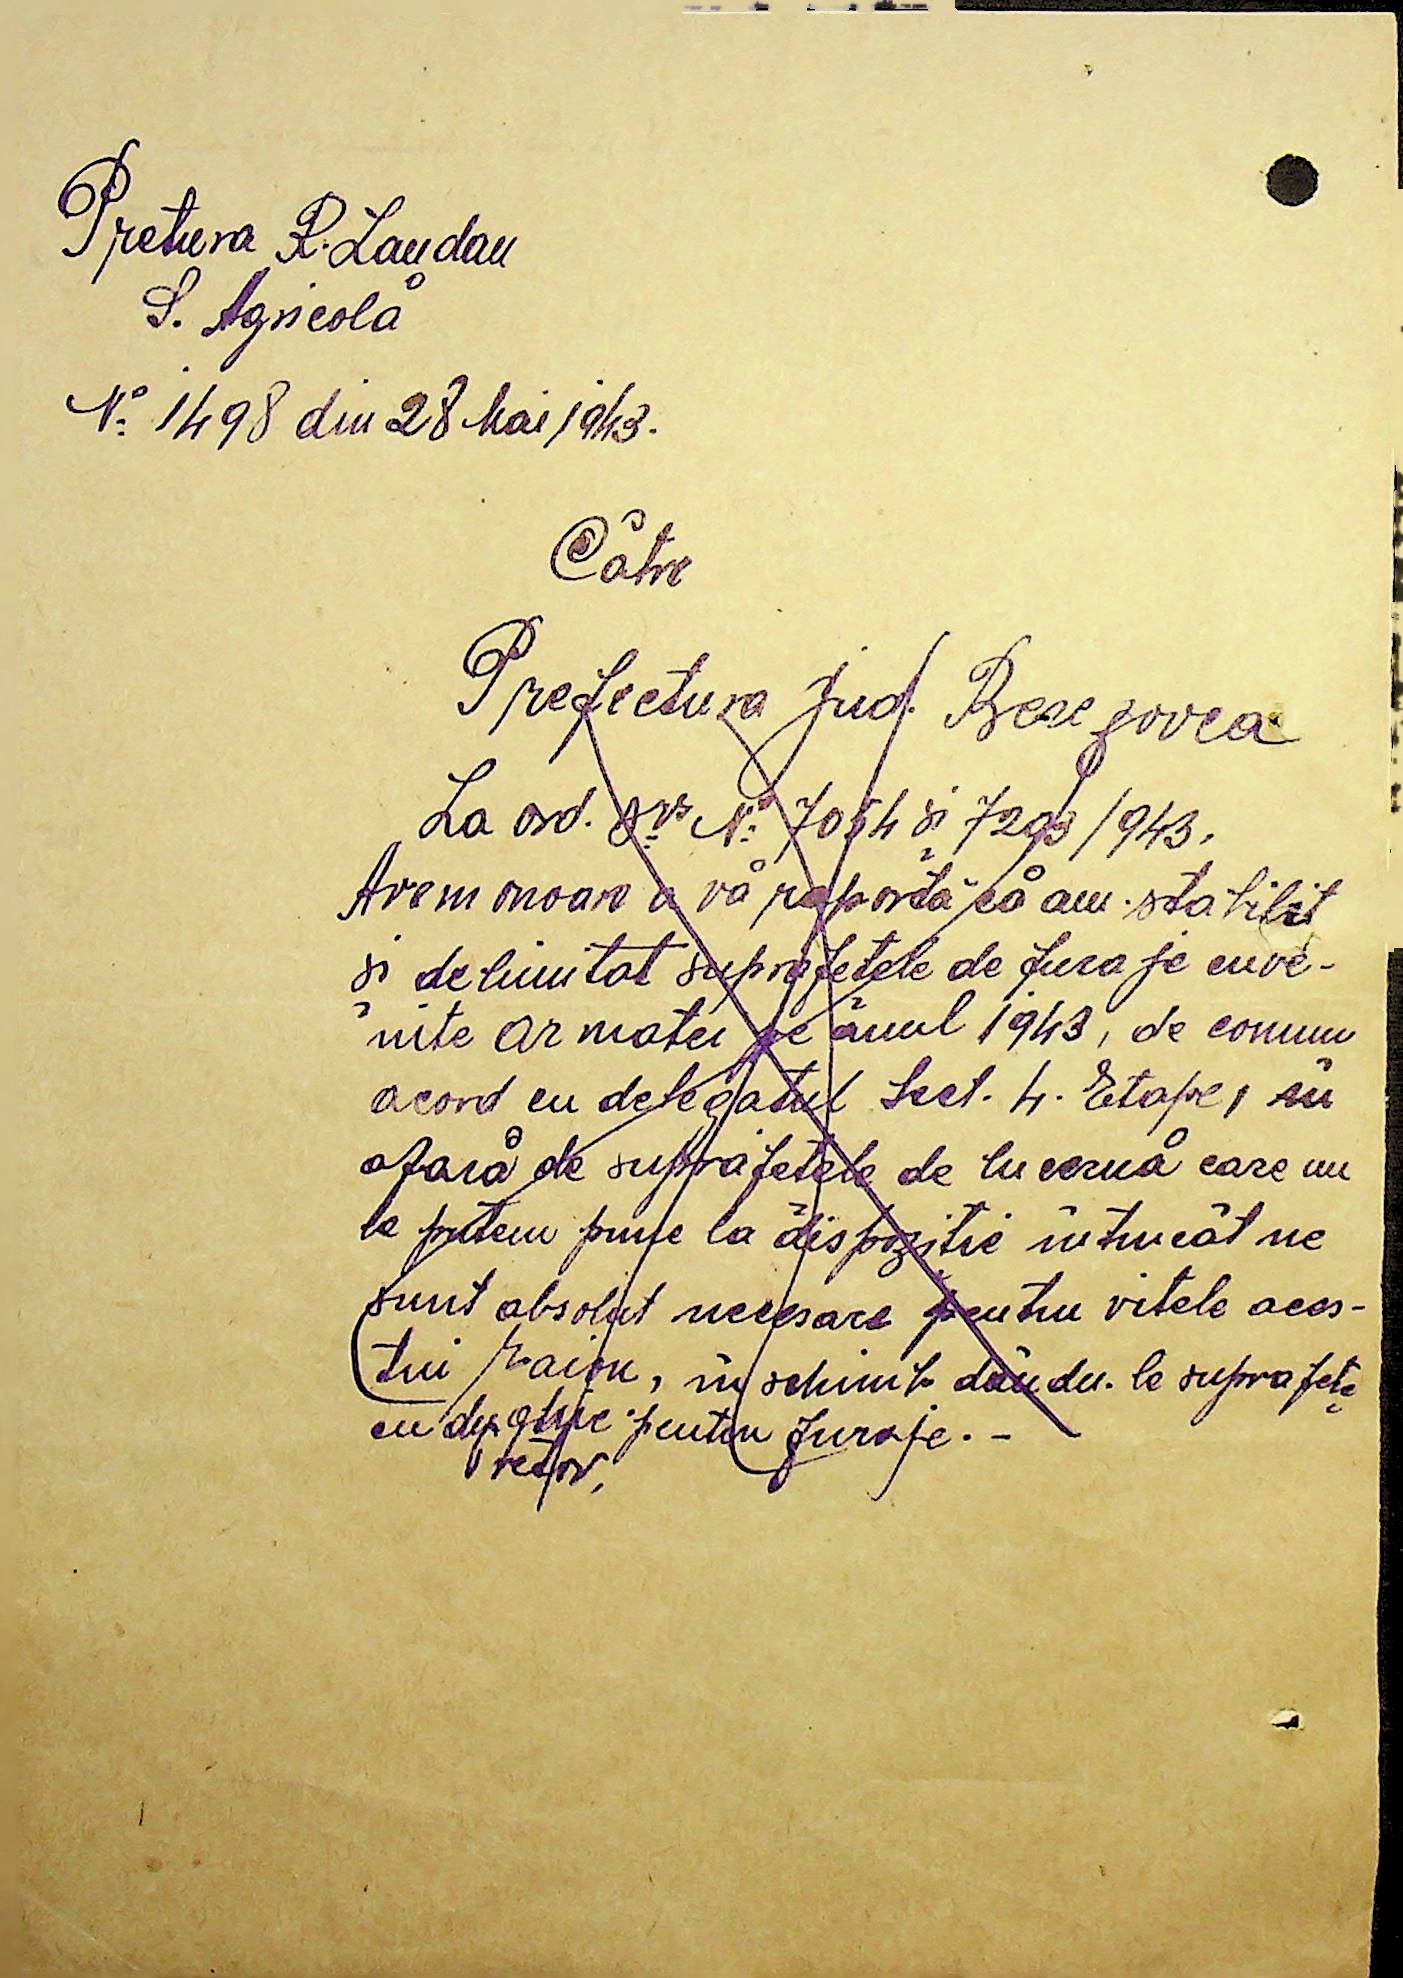 Pretura R. Landau
S. Agricolă
Nº 1498 din 28 Mai 1943.
Către
Prefectura jud. Berezovca
La ord. Dvs Nº 7054 și 7293/943.
Avem onoare a vă raportă că am stabilit
și delimitat suprafețele de furaje cuve-
nite armatei pe anul 1943, de comun
acord cu delegatul Sect. 4. Etape, în
afară de suprafețele de lucernă care nu
le putem pune la dispoziție întrucât ne
sunt absolut necesare pentru vitele aces-
tui raion, în schimb dându-le suprafețe
cu pentru furaje. -
Pretor,